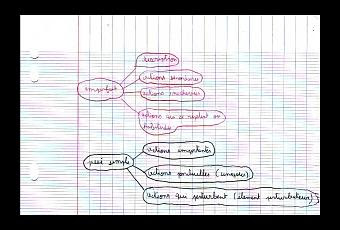 imparfait
description
actions secondaires
actions inachevées
actions qui se répètent ou
habitudes
passé simple
actions importantes
actions ponctuelles (uniques)
actions qui perturbent (élément perturbateur)